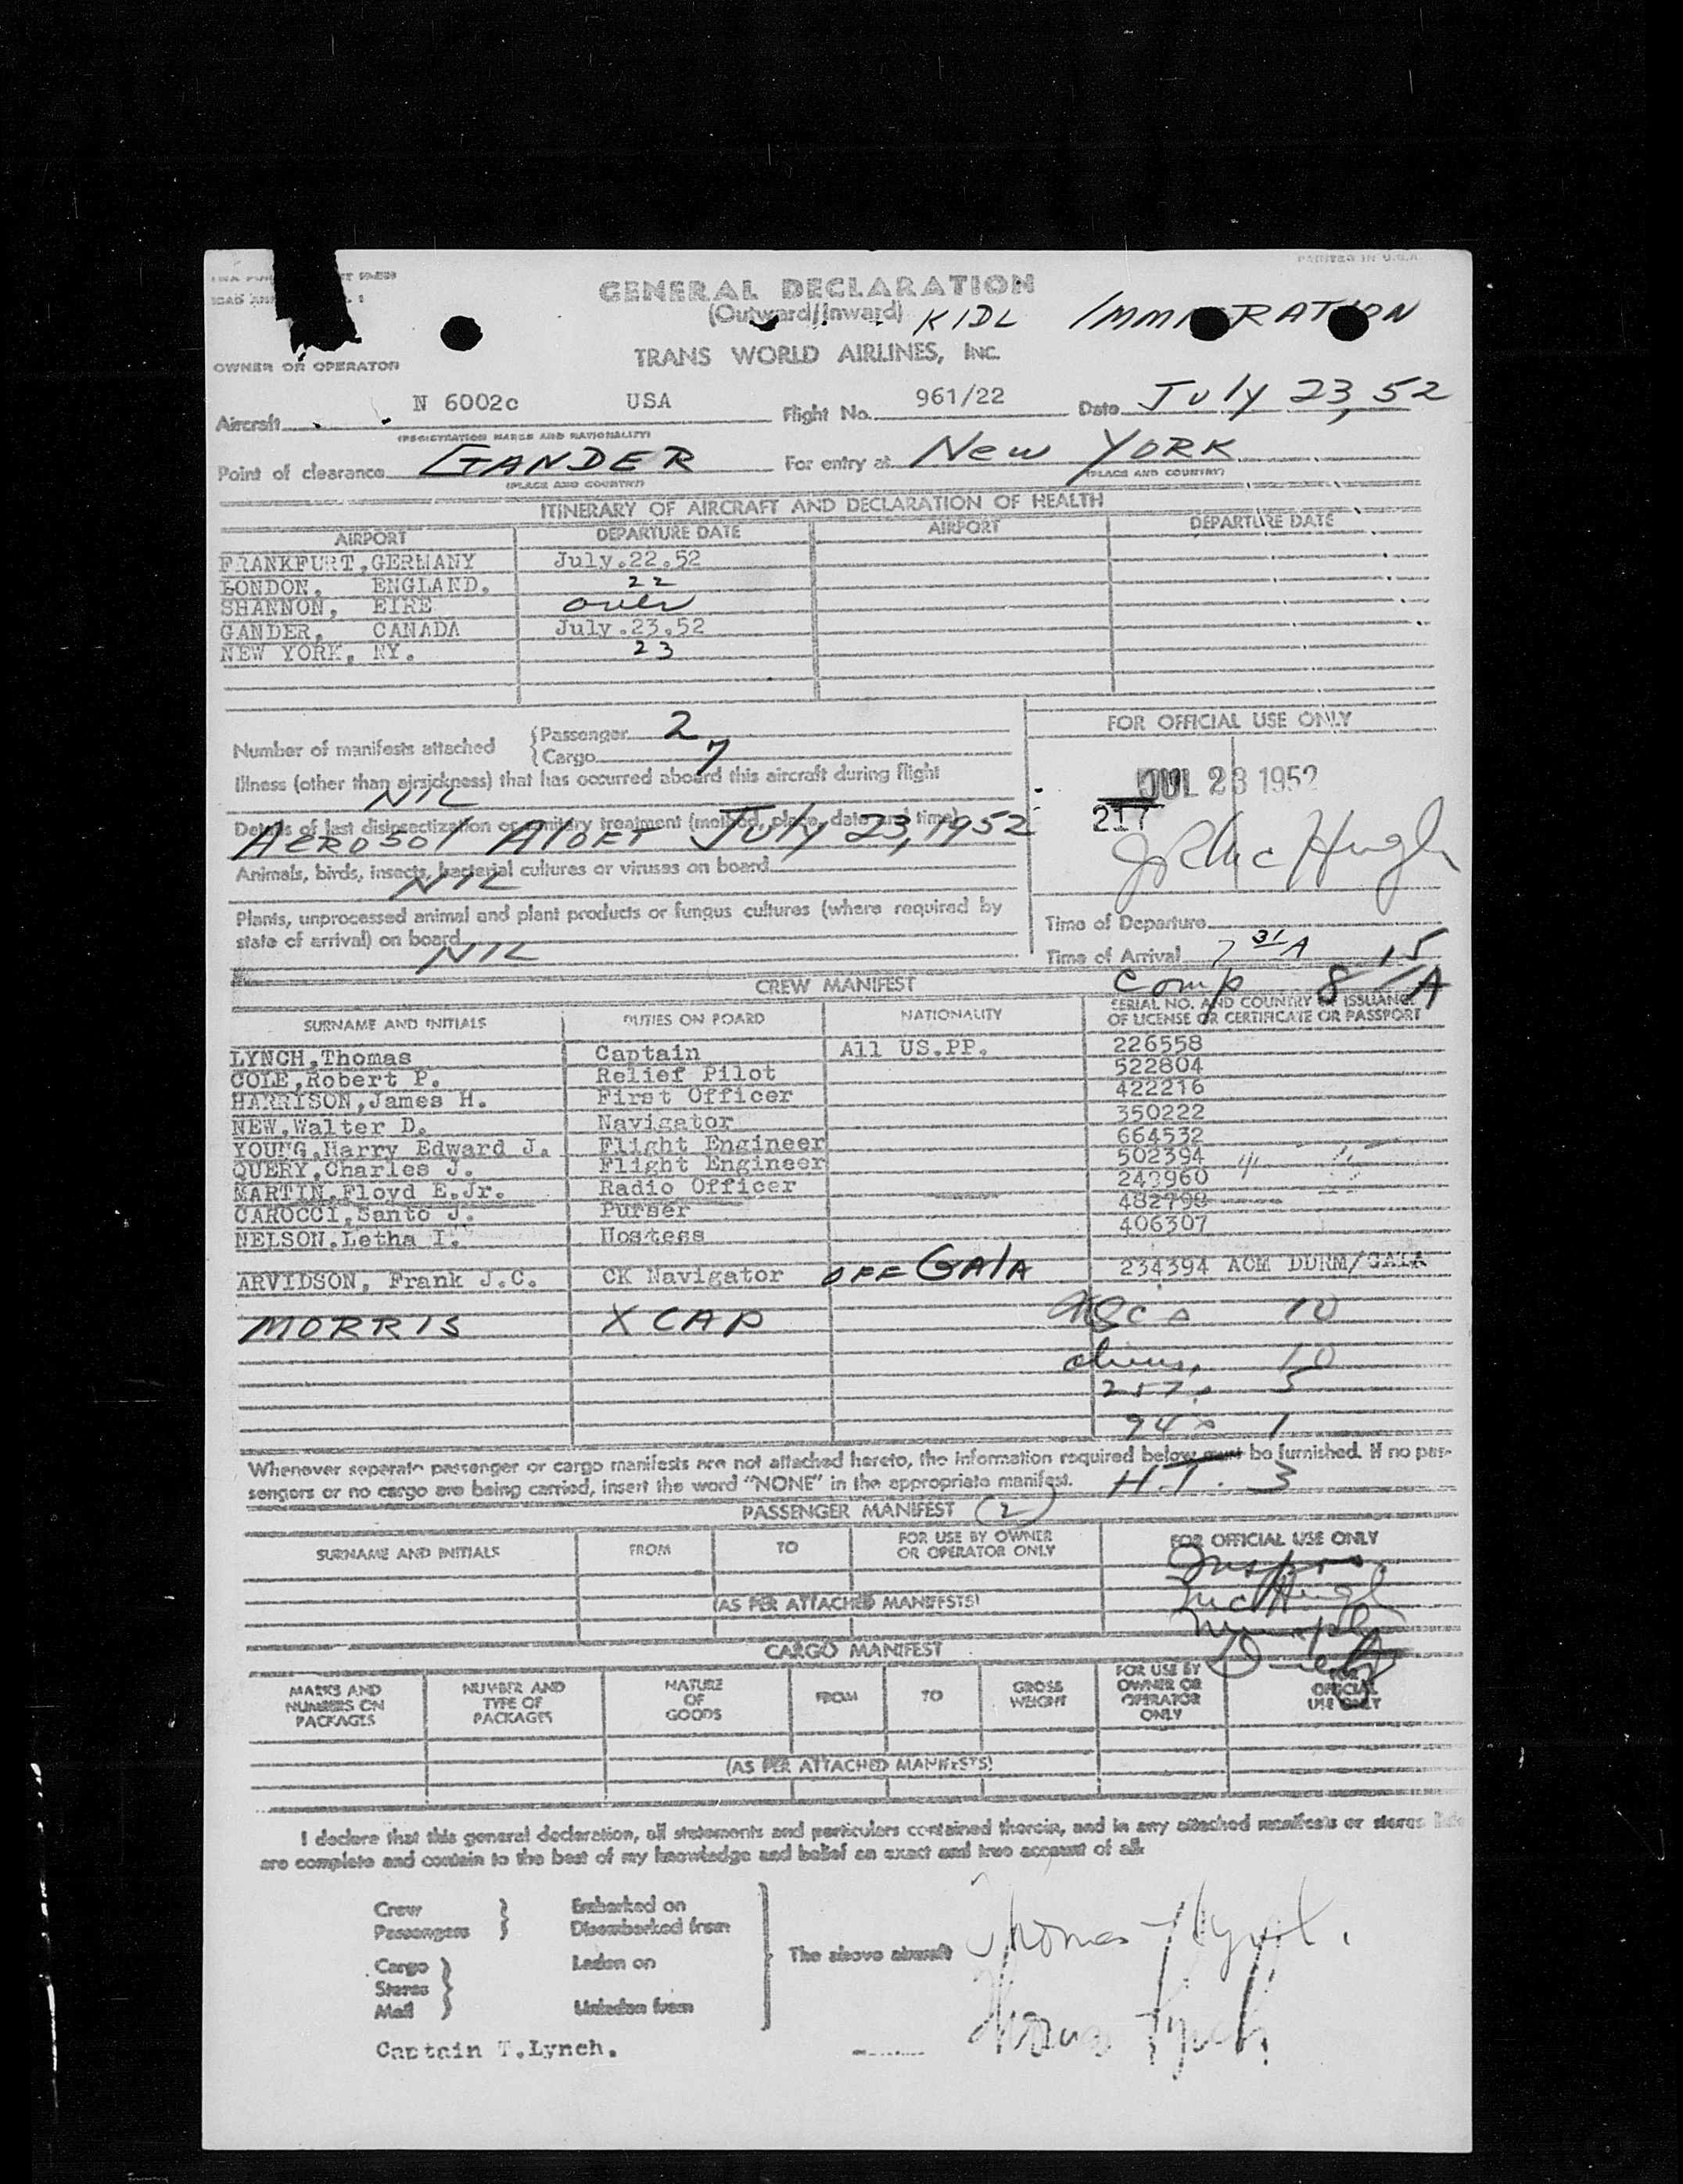 PRINTED IN U.S.A.
GENERAL DECLARATION
(Outward/Inward) KIDL IMMIGRATION
TRANS WORLD AIRLINES, INC.
OWNER OR OPERATOR
Aircraft N 6002c USA Flight No. 961/22 Date July 23, 52
(REGISTRATION MARKS AND NATIONALITY)
Point of clearance GANDER For entry at New YORK
(PLACE AND COUNTRY) (PLACE AND COUNTRY)
ITINERARY OF AIRCRAFT AND DECLARATION OF HEALTH
AIRPORT DEPARTURE DATE AIRPORT DEPARTURE DATE
FRANKFURT,GERMANY July.22.52
LONDON, ENGLAND. 22
SHANNON, EIRE over
GANDER, CANADA July.23.52
NEW YORK, NY. 23
FOR OFFICIAL USE ONLY
Number of manifests attached
Passenger 2
Cargo 7
Illness (other than airsickness) that has occurred aboard this aircraft during flight
NIL
JUL 23 1952
217
Details of last disinsectization or sanitary treatment (method, place, date and time)
AEROSOL ALOFT July 23, 1952
Animals, birds, insects, bacterial cultures or viruses on board
NIL
Plants, unprocessed animal and plant products or fungus cultures (where required by
state of arrival) on board
NIL
Time of Departure
Time of Arrival 7 31 A
Comp 8 15 A
CREW MANIFEST
SURNAME AND INITIALS DUTIES ON BOARD NATIONALITY SERIAL NO. AND COUNTRY OF ISSUANCE
OF LICENSE OR CERTIFICATE OR PASSPORT
LYNCH,Thomas Captain All US.PP. 226558
COLE,Robert P. Relief Pilot 522804
HARRISON,James H. First Officer 422216
NEW,Walter D. Navigator 350222
YOUNG,Harry Edward J. Flight Engineer 664532
QUERY,Charles J. Flight Engineer 502394
MARTIN,Floyd E.Jr. Radio Officer 249960
CAROCCI,Santo J. Purser 482798
NELSON.Letha I. Hostess 406307
ARVIDSON, Frank J.C. CK Navigator OFF GAIA 234394 ACM DDRM/GAIA
MORRIS X CAP 10
10
257 5
94 1
Whenever separate passenger or cargo manifests are not attached hereto, the information required below must be furnished. If no pas-
sengers or no cargo are being carried, insert the word "NONE" in the appropriate manifest.
H.T. 3
PASSENGER MANIFEST 2
SURNAME AND INITIALS FROM TO FOR USE BY OWNER
OR OPERATOR ONLY FOR OFFICIAL USE ONLY
(AS PER ATTACHED MANIFESTS)
CARGO MANIFEST
MARKS AND
NUMBERS ON
PACKAGES
NUMBER AND
TYPE OF
PACKAGES
NATURE
OF
GOODS
FROM TO
GROSS
WEIGHT
FOR USE BY
OWNER OR
OPERATOR
ONLY
FOR
OFFICIAL
USE ONLY
(AS PER ATTACHED MANIFESTS)
I declare that this general declaration, all statements and particulars contained therein, and in any attached manifests or stores lists
are complete and contain to the best of my knowledge and belief an exact and true account of all
Crew Embarked on
Passengers Disembarked from
Cargo Laden on The above aircraft
Stores
Mail Unladen from
Thomas Lynch.
Thomas Lynch
Captain T.Lynch.